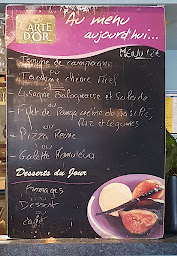 CARTE D'OR
Au menu
aujourd'hui...
MENU 12€
Terrine de campagne
ou
Tartine chèvre
Lasagne Bolognaise et Salade
ou
Filet de Panga crème de Basilic,
riz et légumes
ou
Pizza Reine
ou
Galette
Desserts du Jour
Fromages
ou
Dessert
ou
café